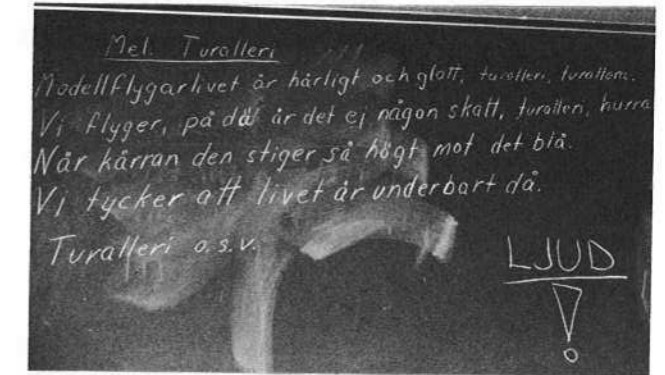 Mel. Turalleri
Modellflygarlivet är härligt och glatt, turalleri, turallera.
Vi flyger, på då är det ej någon skatt, turalleri, hurra
När kärran den stiger så högt mot det blå.
Vi tycker att livet är underbart då.
Turalleri o.s.v.
LJUD
!